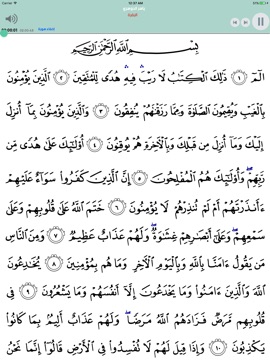 البقرة
00:01
بِسْمِ ٱللَّهِ ٱلرَّحْمَٰنِ ٱلرَّحِيمِ
الٓمٓ ١ ذَٰلِكَ ٱلْكِتَٰبُ لَا رَيْبَ ۛ فِيهِ ۛ هُدًى لِّلْمُتَّقِينَ ٢ ٱلَّذِينَ يُؤْمِنُونَ
بِٱلْغَيْبِ وَيُقِيمُونَ ٱلصَّلَوٰةَ وَمِمَّا رَزَقْنَٰهُمْ يُنفِقُونَ ٣ وَٱلَّذِينَ يُؤْمِنُونَ بِمَآ أُنزِلَ
إِلَيْكَ وَمَآ أُنزِلَ مِن قَبْلِكَ وَبِٱلْءَاخِرَةِ هُمْ يُوقِنُونَ ٤ أُو۟لَٰٓئِكَ عَلَىٰ هُدًى مِّن
رَّبِّهِمْ ۖ وَأُو۟لَٰٓئِكَ هُمُ ٱلْمُفْلِحُونَ ٥ إِنَّ ٱلَّذِينَ كَفَرُوا۟ سَوَآءٌ عَلَيْهِمْ
ءَأَنذَرْتَهُمْ أَمْ لَمْ تُنذِرْهُمْ لَا يُؤْمِنُونَ ٦ خَتَمَ ٱللَّهُ عَلَىٰ قُلُوبِهِمْ وَعَلَىٰ
سَمْعِهِمْ ۖ وَعَلَىٰٓ أَبْصَٰرِهِمْ غِشَٰوَةٌ ۖ وَلَهُمْ عَذَابٌ عَظِيمٌ ٧ وَمِنَ ٱلنَّاسِ
مَن يَقُولُ ءَامَنَّا بِٱللَّهِ وَبِٱلْيَوْمِ ٱلْءَاخِرِ وَمَا هُم بِمُؤْمِنِينَ ٨ يُخَٰدِعُونَ
ٱللَّهَ وَٱلَّذِينَ ءَامَنُوا۟ وَمَا يَخْدَعُونَ إِلَّآ أَنفُسَهُمْ وَمَا يَشْعُرُونَ ٩ فِى
قُلُوبِهِم مَّرَضٌ فَزَادَهُمُ ٱللَّهُ مَرَضًا ۖ وَلَهُمْ عَذَابٌ أَلِيمٌۢ بِمَا كَانُوا۟
يَكْذِبُونَ ١٠ وَإِذَا قِيلَ لَهُمْ لَا تُفْسِدُوا۟ فِى ٱلْأَرْضِ قَالُوٓا۟ إِنَّمَا نَحْنُ